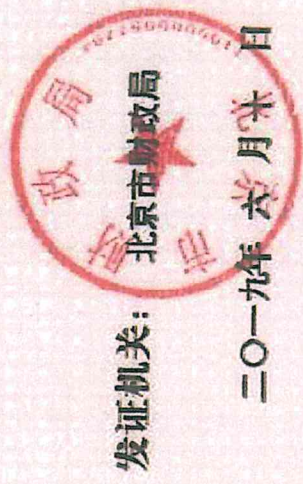 发证机关：北京市财政局
二〇一九年六月十日
北京市财政局